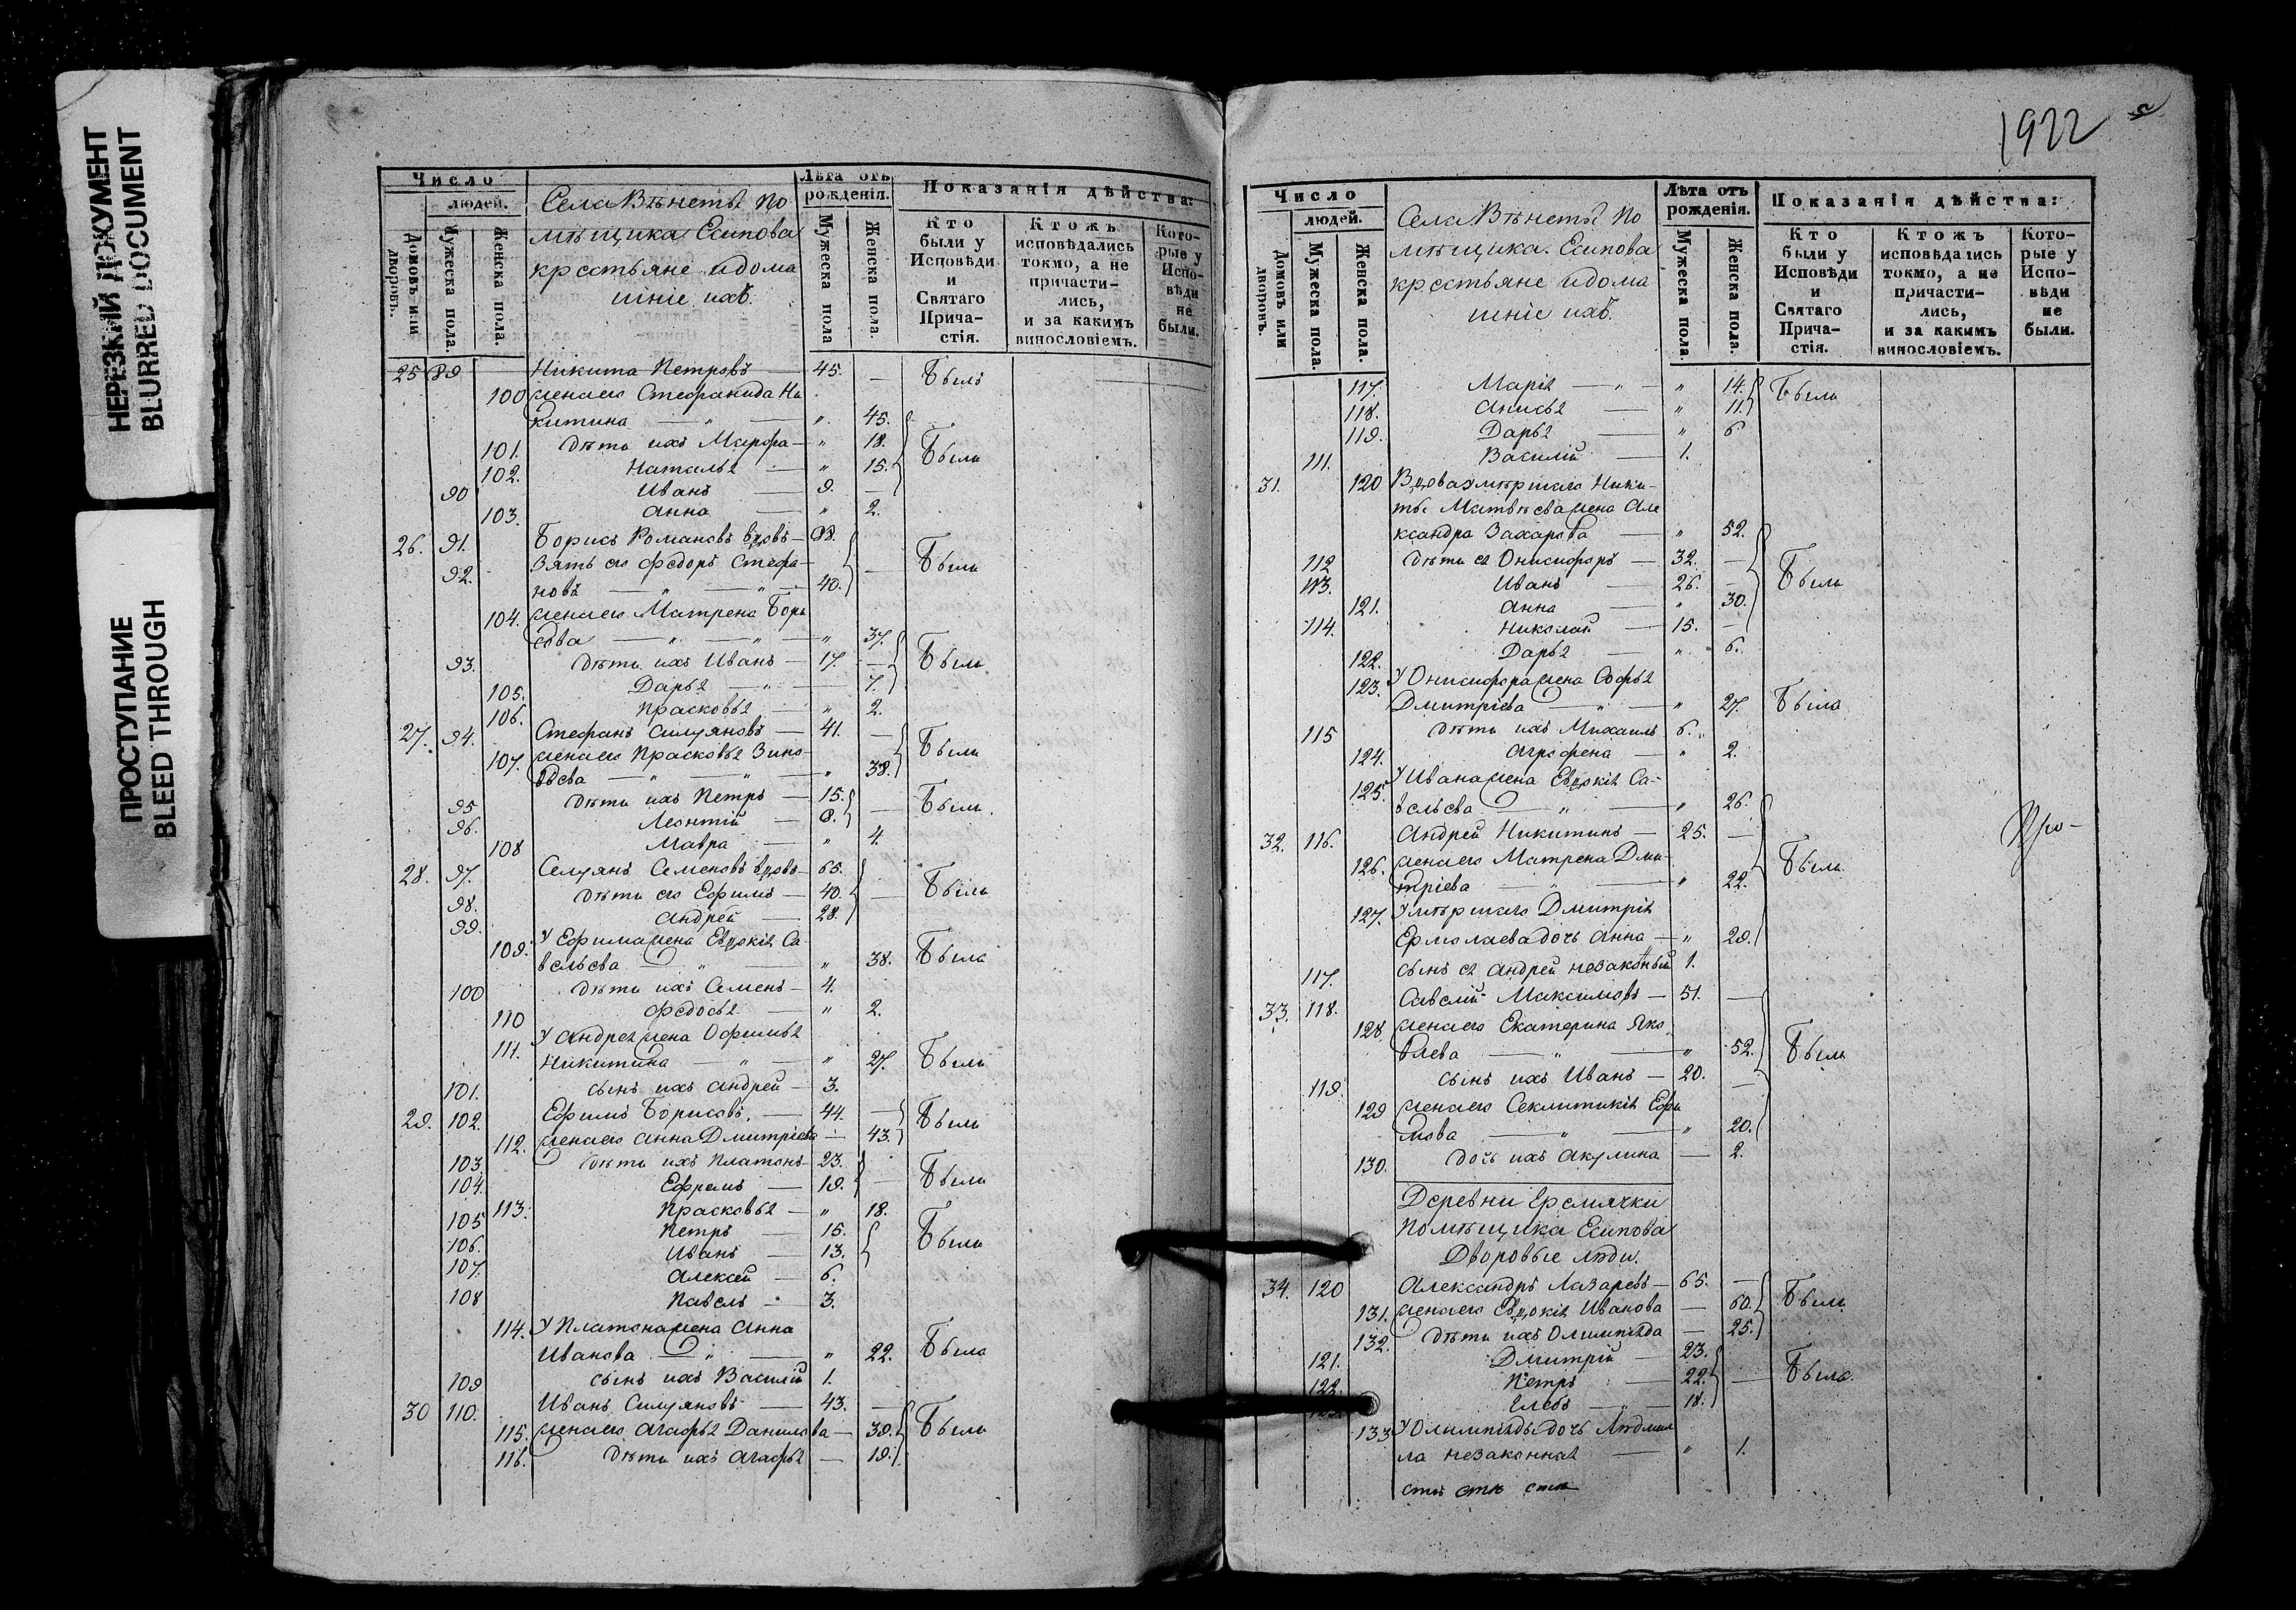 НЕРЕЗКИЙ ДОКУМЕНТ
BLURRED DOCUMENT
ПРОСТУПАНИЕ
BLEED THROUGH
Число
людей.
Домовъ или дворовъ.
Мужеска пола.
Женска пола.
Села Вѣнетъ По
мѣщика Есипова
крестьяне и дома
шніе ихъ.
Лѣта отъ рожденія.
Мужеска пола
Женска пола.
Показанія дѣйства:
Кто были у Исповѣди и Святаго Прича-стія.
Ктожъ исповѣдались токмо, а не причасти-лись, и за какимъ винословіемъ.
Кото-рые у Испо-вѣди не были.
25 89 Никита Петровъ — 45. — Былъ
100 жена его Стефанида Ни
китина — " — " 45.
101. дѣти ихъ Марфа — " 18. Были
102. Наталья — " 15.
90 Иванъ — 9. —
103. Анна — " 2.
26. 91. Борисъ Романовъ вдовъ — 88.
92. Зять его Федоръ Стефа- Были
новъ — " — " — 40.
104. жена его Матрена Бори
сова — " — " — " 37.
93. дѣти ихъ Иванъ — 17. — Были
105. Дарья — " — 7.
106. Прасковья — " 2.
27. 94. Стефанъ Силуяновъ — 41. —
107. жена его Прасковья Зино Были
вьева — " — " — " 38.
95 дѣти ихъ Петръ — 15. — Были.
96. Леонтій — 8.
108 Мавра — " 4.
28. 97. Селуянъ Семеновъ вдовъ — 65.
98. дѣти его Ефимъ — 40. — Были
99. Андрей — 28.
109. У Ефима жена Евдокія Са-
вельева — " — " 38. Была
100 дѣти ихъ Семенъ — 4.
110 Федосья — " 2.
111. У Андрея жена Офимья
Никитина — " — " 27. Были
101. сынъ ихъ Андрей — 3.
29. 102. Ефимъ Борисовъ. — 44. — Были
112. жена его Анна Дмитріева — 43.
103. дѣти ихъ Платонъ — 23.
104. Ефремъ — 19. — Были
113. Прасковья — " 18.
105 Петръ — 15.
106. Иванъ — 13. Были
107. Алексей — 6.
108 Павелъ — 3.
114. У Платона жена Анна
Иванова — " — " 22. Была
109 сынъ ихъ Василій 1.
30 110. Иванъ Силуяновъ — 43. —
115. жена его Агафья Данилова — 39. Были
116. дѣти ихъ Агафья — 19.
1922
Число
людей.
Домовъ или дворовъ.
Мужеска пола.
Женска пола.
Села Вѣнетъ По
мѣщика Есипова
крестьяне и дома
шніе ихъ.
Лѣта отъ рожденія.
Мужеска пола.
Женска пола.
Показанія дѣйства:
Кто были у Исповѣди и Святаго Прича-стія.
Ктожъ исповѣдались токмо, а не причасти-лись, и за какимъ винословіемъ.
Кото-рые у Испо-вѣди не были.
117. Марія — " — " 14. Были
118. Анисья — " 11.
119. Дарья — " 6
111. Василій — 1.
31. 120 Вдова умершаго Ники-
ты Матвѣева жена Але
ксандра Захарова — " 52.
112 дѣти ея Онисифоръ — 32. —
113. Иванъ — 26. — Были
121. Анна — " 30.
114. Николай — 15. —
122. Дарья — " 6.
123. У Онисифора жена Софья
Дмитріева — " — " 27. Была
115 дѣти ихъ Михаилъ 6. "
124. Агрофена — " 2.
125. У Ивана жена Евдокія Са-
вельева — " — " 26.
32. 116. Андрей Никитинъ — 25. —
126. жена его Матрена Дми- Были
тріева — " — " 22.
127. Умершаго Дмитрія
Ермолаева дочь Анна — " 29.
117. сынъ ея Андрей незаконый 1.
33. 118. Савелій Максимовъ — 51. —
128 жена его Екатерина Яко
влева — " — " 52. Были
119. сынъ ихъ Иванъ — 20. —
129 жена его Секлитикія Ефи
мова — " — " 20.
130. дочь ихъ Акулина — 2.
Деревни Еремячки
Помѣщика Есипова
Дворовые люди.
34. 120 Александръ Лазаревъ — 65. — Были
131. жена его Евдокія Иванова — 60.
132. дѣти ихъ Олимпіада — 25.
121. Дмитрій — 23.
122. Петръ — 22. — Были.
Глебъ — " — 18.
133 У Олимпіады дочь Людмил
ла незаконная — " 1.
Про-